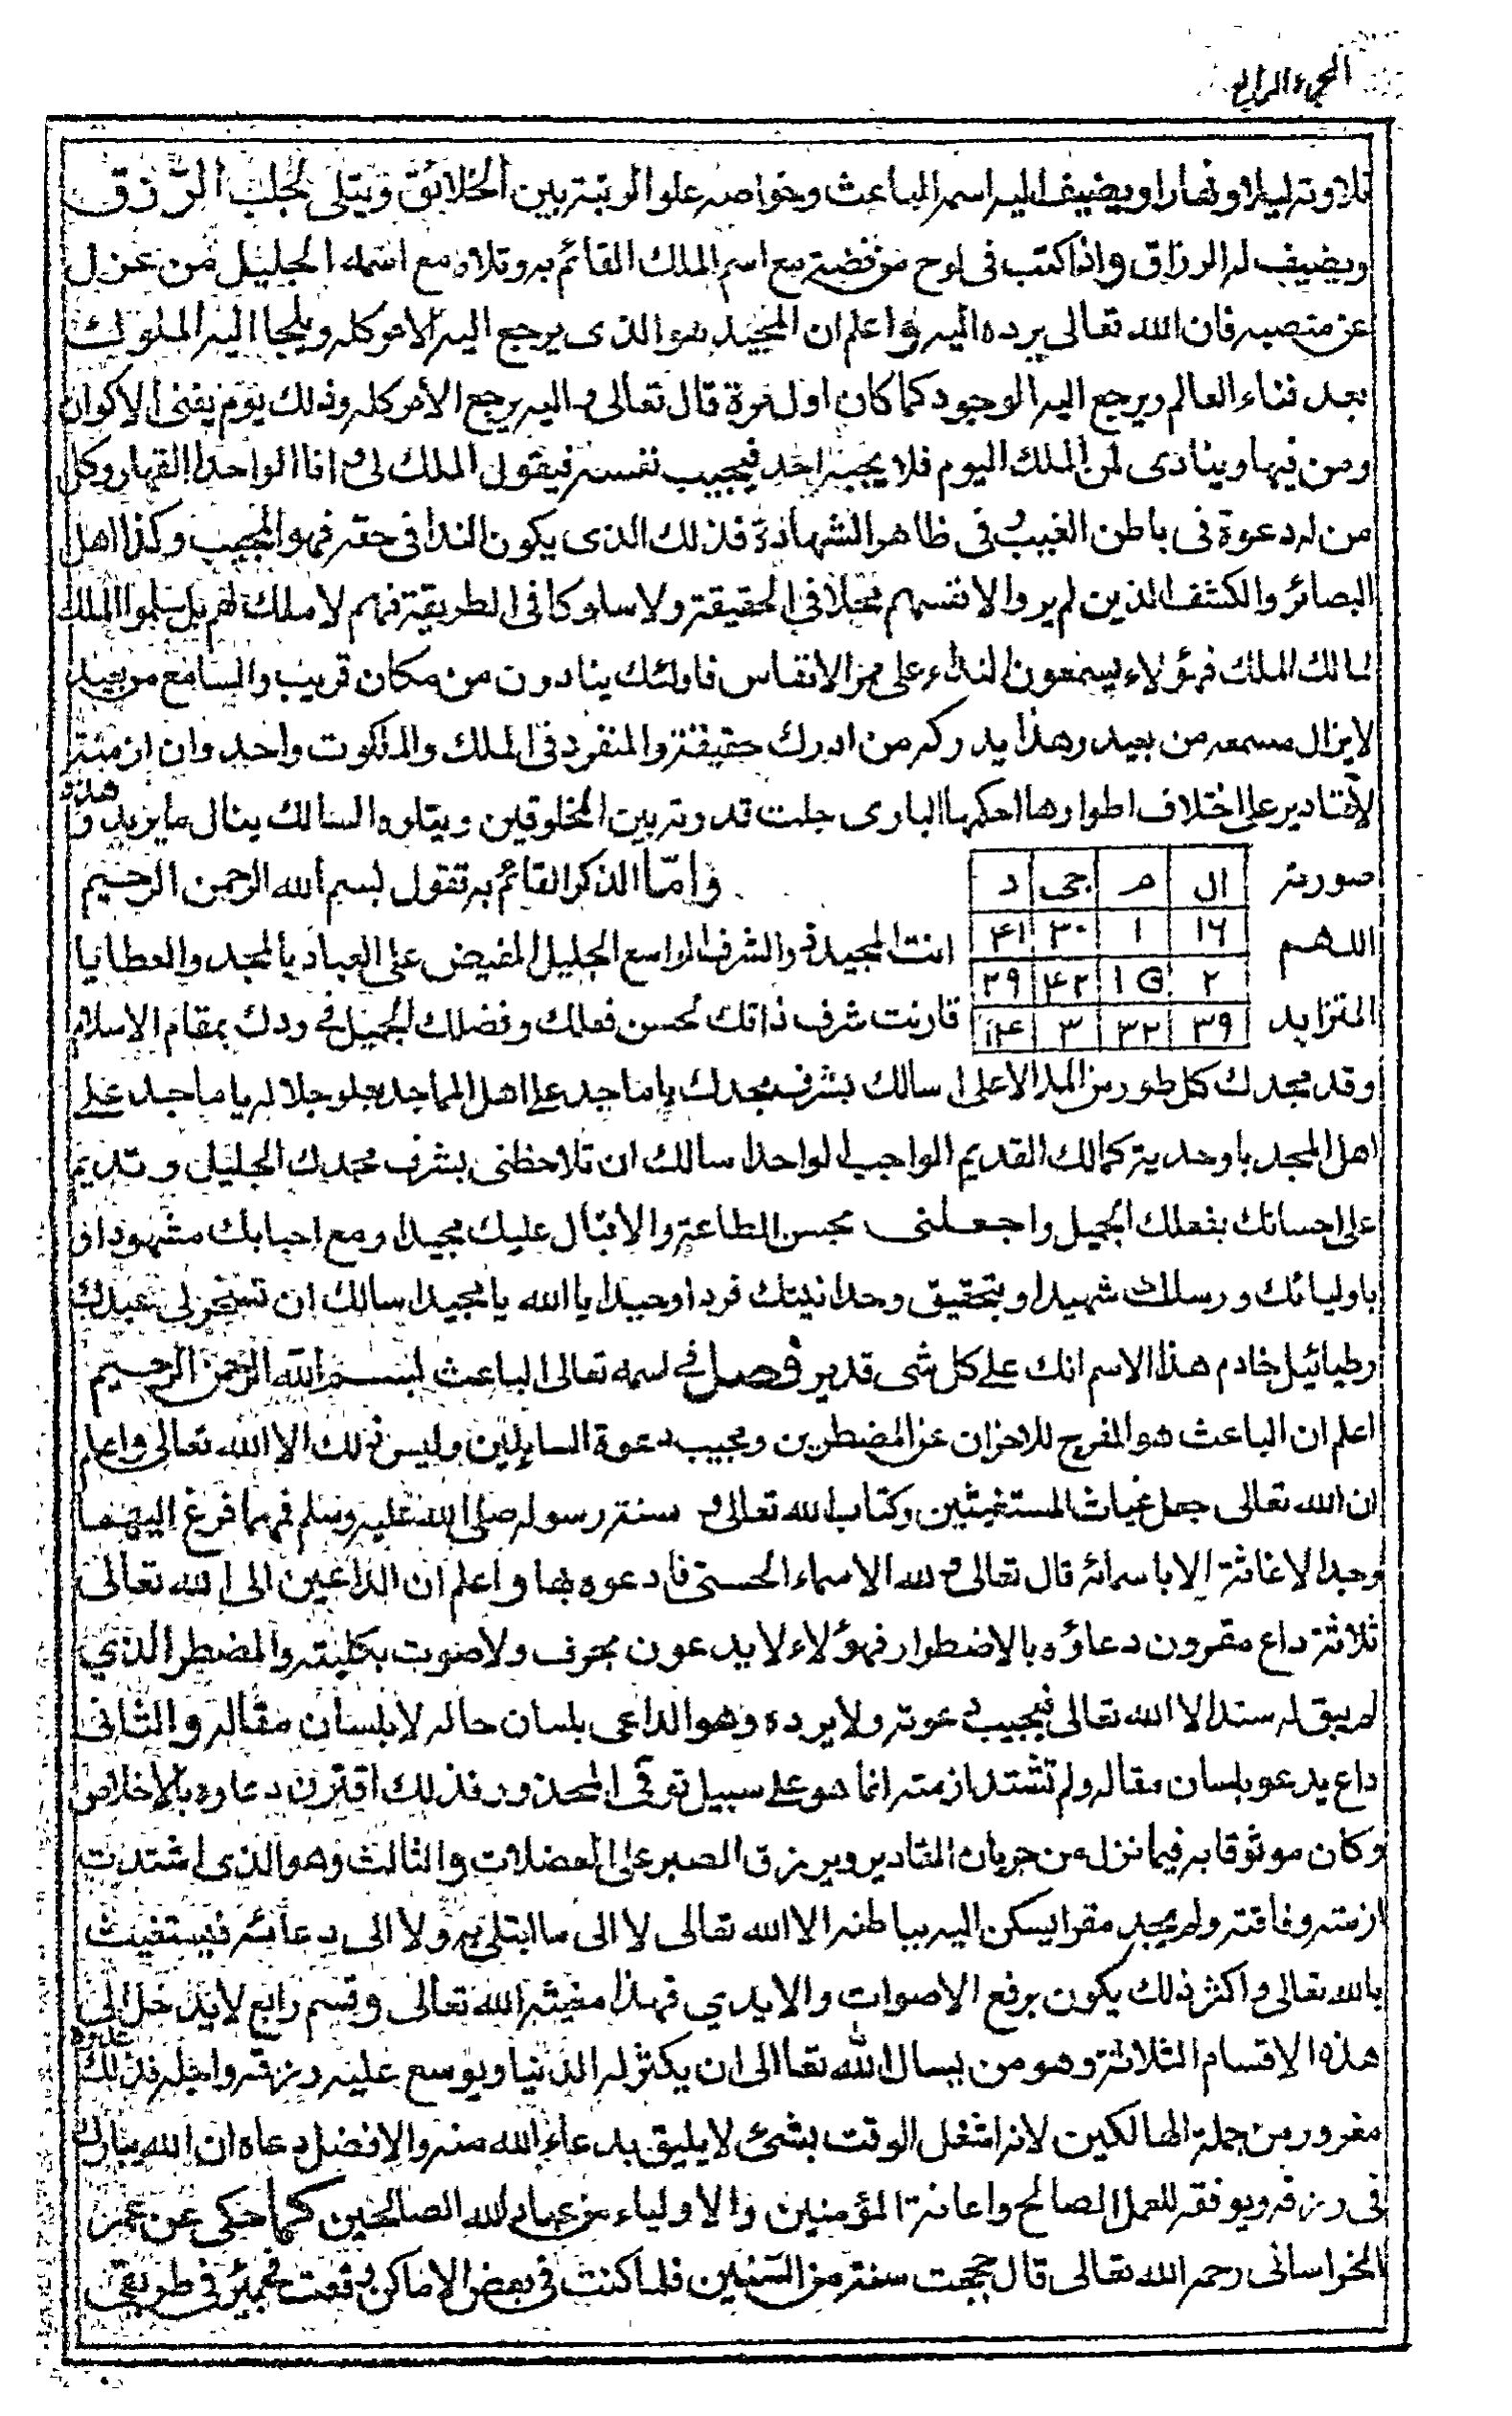 الجزء الرابع
تلاوته ليلا ونهارا ويضيف اليه اسمه الباعث وخواصه علو الرتبة بين الخلائق ويتلى لجلب الرزق
ويضيف له الرزاق واذا كتب فى لوح من فضة مع اسم الملك القائم به وتلاه مع اسمه الجليل من عزل
عن منصبه فان الله تعالى يرده اليه واعلم ان المجيد هو الذى يرجع اليه الامر كله ويلجا اليه الملوك
بعد فناء العالم ويرجع اليه الوجود كما كان اول مرة قال تعالى واليه يرجع الأمر كله وذلك يوم يفنى الاكوان
ومن فيها وينادى لمن الملك اليوم فلا يجيبه احد فيجيب نفسه فيقول الملك لى وانا الواحد القهار وكل
من له دعوة فى باطن الغيب فى ظاهر الشهادة فذلك الذى يكون الندا فى حقه فهو المجيب وكذا اهل
البصائر والكشف الذين لم يروا لانفسهم محلا فى الحقيقة ولا سلوكا فى الطريقة فهم لا ملك لهم بل سلموا الملك
لمالك الملك فهؤلاء يسمعون النداء على ممر الانفاس فاولئك ينادون من مكان قريب والسامع من بعيد
لا يزال مسمعه من بعيد وهذا يدركه من ادرك حقيقته والمنفرد فى الملك والملكوت واحد وان ازمنة
لأقتادير على اختلاف اطوارها احكمها البارى جلت قدرته بين المخلوقين ويتلوه السالك ينال ما يريد وهذه
صورته ال م جى د وامّا الذكر القائم به تقول بسم الله الرحمن الرحيم
اللهم ١٦ ١ ٣٠ ۴١ انت المجيد ذو الشرف الواسع الجليل المفيض على العباد بالمجد والعطايا
٢ ۴٢ ٢٩
المتزايد ٣٩ ٣٢ ٣ ١۴ قارنت شرف ذاتك لحسن فعالك وفضلك الجميل فى ردك بمقام الاسلام
وقد مجدك كل طور من الملا الاعلى اسالك بشرف مجدك يا ماجد على اهل المماجد بعلو جلاله يا ماجد على
اهل المجد باوحدية كمالك القديم الواجب الواحد اسالك ان تلاحظنى بشرف مجدك الجليل وتديم
على احسانك بفعلك الجميل واجعلنى بحسن الطاعة والاقبال عليك مجيدا ومع احبابك مشهودا و
باوليائك ورسلك شهيدا وبتحقيق وحدانيتك فردا وحيدا يا الله يا مجيد اسالك ان تسخر لى عبدك
رطيائيل خادم هذا الاسم انك على كل شى قدير فصل فى اسمه تعالى الباعث بسم الله الرحمن الرحيم
اعلم ان الباعث هو المفرج للاحزان عن المضطرين ومجيب دعوة السايلين وليس ذلك الا الله تعالى واعلم
ان الله تعالى جعل غياث المستغيثين وكتاب الله تعالى و سنة رسوله صلى الله عليه وسلم فمهما فرغ اليهما
وجد الاغاثة الا باسمائه قال تعالى ولله الاسماء الحسنى فادعوه بها واعلم ان الداعين الى الله تعالى
ثلاثة داع مقرون دعاؤه بالاضطرار فهؤلاء لا يدعون بحرف ولا صوت بكليته والمضطر الذي
لم يبق له سندا الا الله تعالى فيجيب دعوته ولا يرده وهو الداعى بلسان حاله لا بلسان مقاله والثانى
داع يدعو بلسان مقاله ولم تشتد ازمته انما هو على سبيل توقى المحذور فذلك اقترن دعاوه بالاخلاص
وكان موثوقا به فيما نزل من جريان المقادير ويرزق الصبر على المعضلات والثالث وهو الذى اشتدت
ازمته وفاقته ولم يجد مقرا يسكن اليه بباطنه الا الله تعالى لا الى ما ابتلى به ولا الى دعائه فيستغيث
بالله تعالى واكثر ذلك يكون برفع الاصوات والايدي فهذا مغيثه الله تعالى وقسم رابع لا يدخل الى
هذه الاقسام الثلاثة وهو من يسال الله تعالى ان يكثر له الدنيا ويوسع عليه رزقه واجله فذلك
مغرور من جملة الهالكين لانه اشغل الوقت بشئ لا يليق بدعاء الله منه والافضل دعاه ان الله يبارك
فى رزقه ويوفقه للعمل الصالح واعانة المؤمنين والاولياء من عباد الله الصالحين كما حكى عن عمر
الخراسانى رحمه الله تعالى قال حججت سنة من السنين فلما كنت فى بعض الاماكن فى طريقى